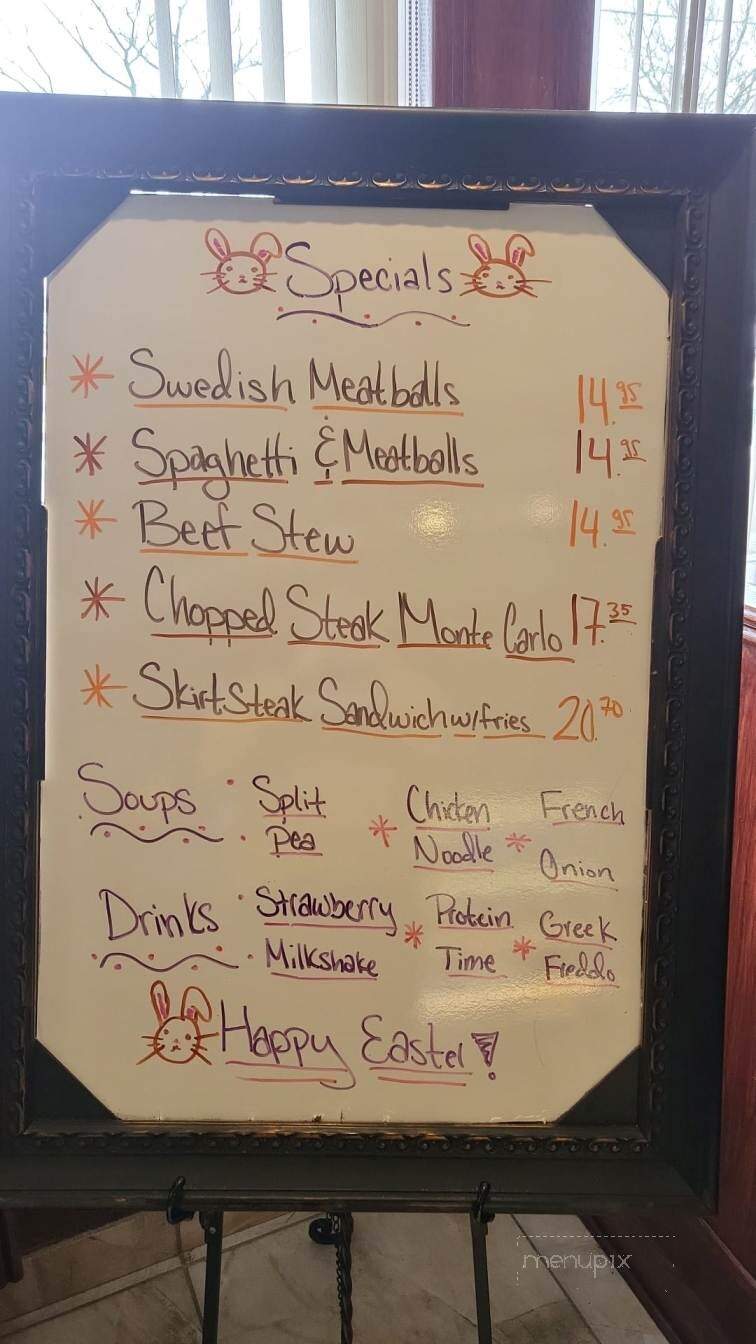 Specials
Swedish Meatballs 14.95
Spaghetti & Meatballs 14.95
Beef Stew 14.95
Chopped Steak Monte Carlo 17.35
Skirt Steak Sandwich w/fries 20.70
Soups • Split Pea * Chicken Noodle * French Onion
Drinks • Strawberry Milkshake * Protein Time * Greek Freddo
Happy Easter!
menupix